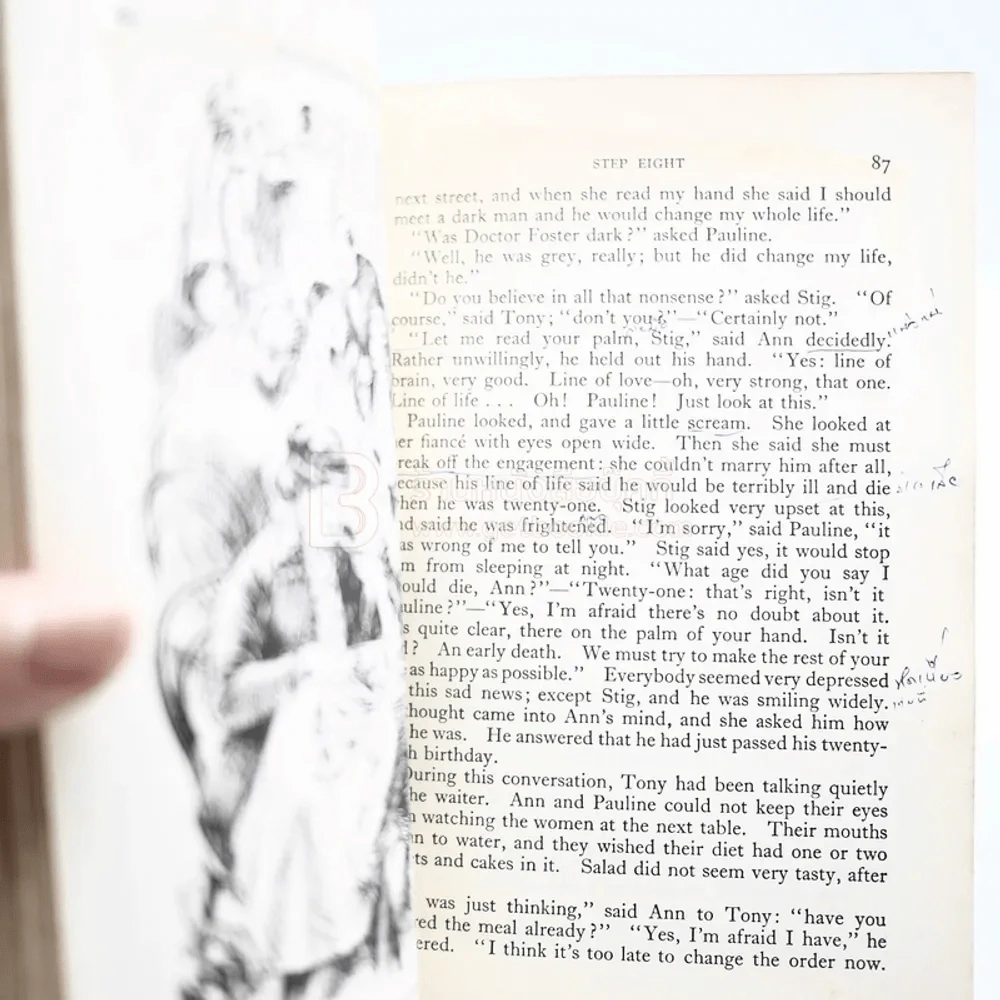 STEP EIGHT 87
next street, and when she read my hand she said I should
meet a dark man and he would change my whole life.”
“Was Doctor Foster dark?” asked Pauline.
“Well, he was grey, really; but he did change my life,
didn’t he.”
“Do you believe in all that nonsense?” asked Stig. “Of
course,” said Tony; “don’t you?”—“Certainly not.”
“Let me read your palm, Stig,” said Ann decidedly.
Rather unwillingly, he held out his hand. “Yes: line of
brain, very good. Line of love—oh, very strong, that one.
Line of life . . . Oh! Pauline! Just look at this.”
Pauline looked, and gave a little scream. She looked at
er fiancé with eyes open wide. Then she said she must
reak off the engagement: she couldn’t marry him after all,
ecause his line of life said he would be terribly ill and die
hen he was twenty-one. Stig looked very upset at this,
nd said he was frightened. “I’m sorry,” said Pauline, “it
as wrong of me to tell you.” Stig said yes, it would stop
m from sleeping at night. “What age did you say I
ould die, Ann?”—“Twenty-one: that’s right, isn’t it
uline?”—“Yes, I’m afraid there’s no doubt about it.
s quite clear, there on the palm of your hand. Isn’t it
? An early death. We must try to make the rest of your
as happy as possible.” Everybody seemed very depressed
this sad news; except Stig, and he was smiling widely.
hought came into Ann’s mind, and she asked him how
he was. He answered that he had just passed his twenty-
h birthday.
During this conversation, Tony had been talking quietly
he waiter. Ann and Pauline could not keep their eyes
watching the women at the next table. Their mouths
n to water, and they wished their diet had one or two
ts and cakes in it. Salad did not seem very tasty, after
was just thinking,” said Ann to Tony: “have you
red the meal already?” “Yes, I’m afraid I have,” he
ered. “I think it’s too late to change the order now.